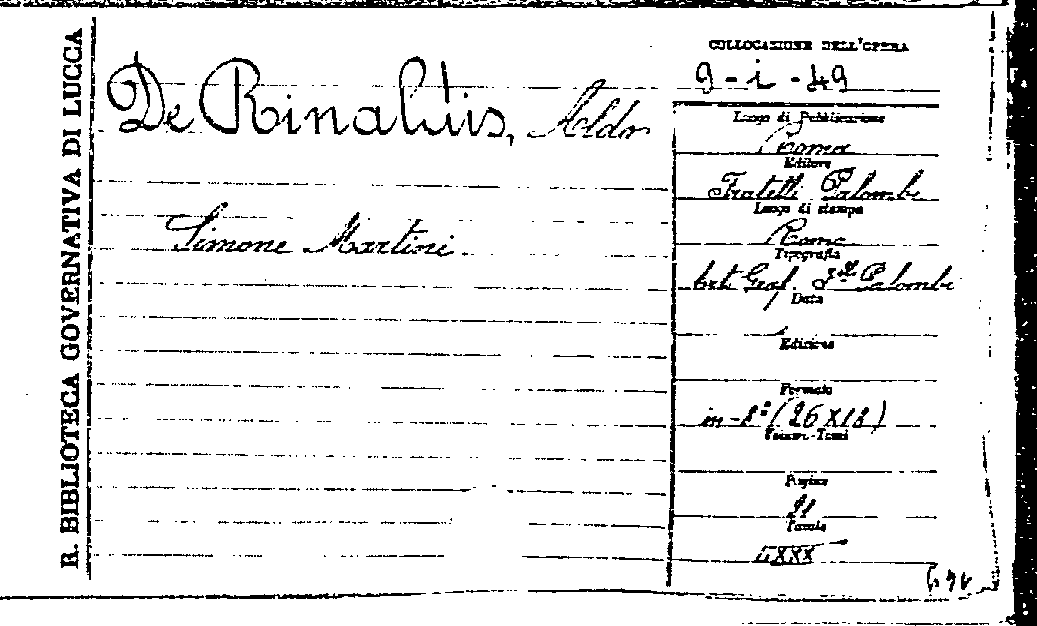 R. BIBLIOTECA GOVERNATIVA DI LUCCA
De Rinaldis, Aldo
Simone Martini.
COLLOCAZIONE DELL'OPERA
9-i-49
Luogo di Pubblicazione
Roma
Editore
Fratelli Palombi
Luogo di stampa
Roma
Tipografia
Art. Graf. F.lli Palombi
Data
Edizione
Formato
in-8º (26 X 18)
Volumi-Tomi
Pagine
21
Tavole
LXXX